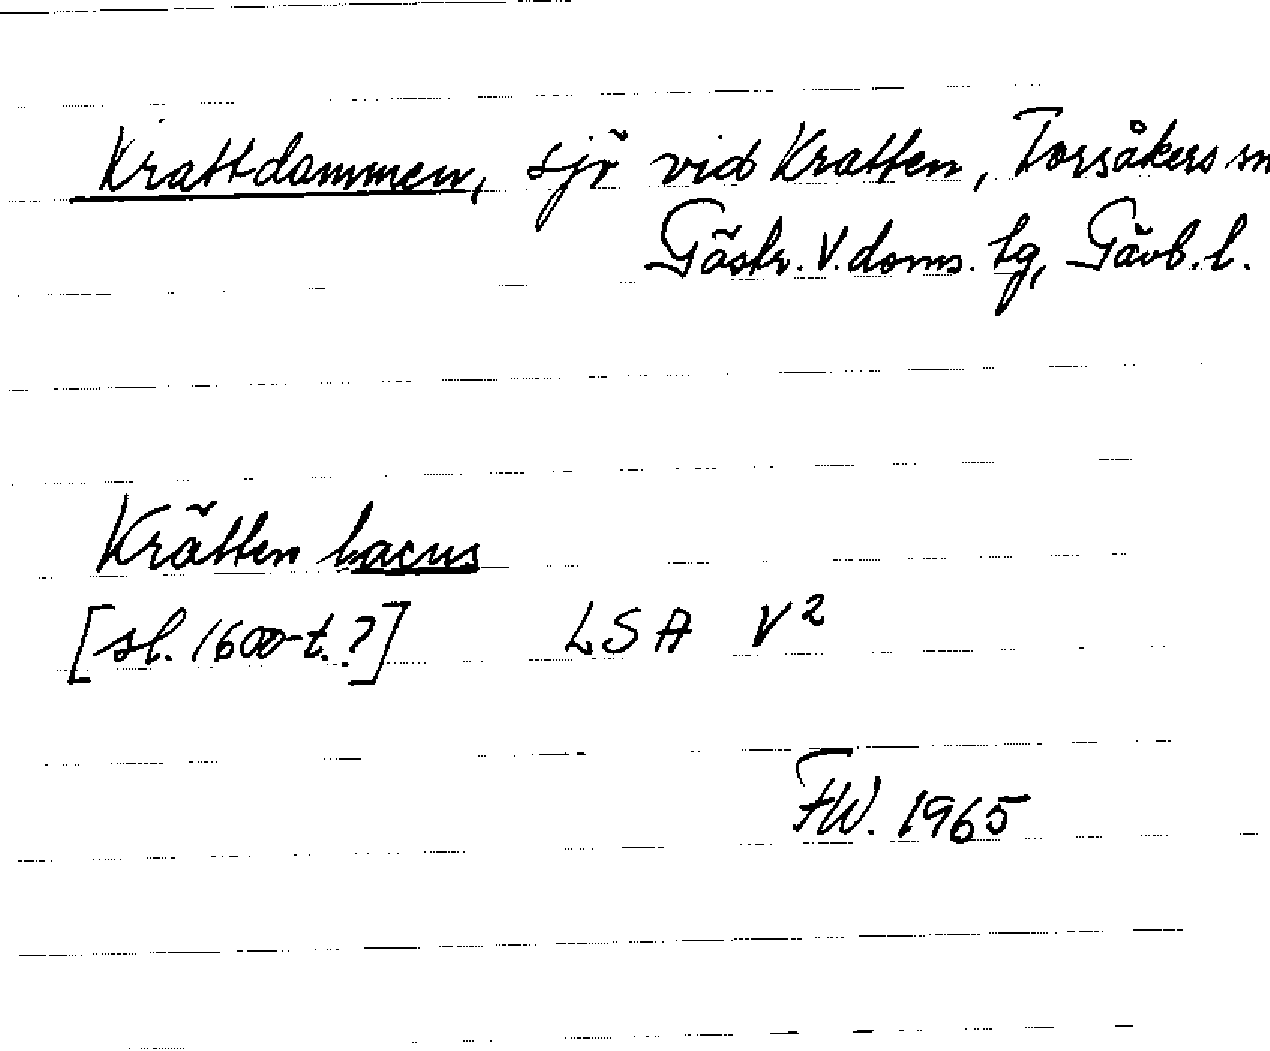 Krattdammen, sjö vid Kratten, Torsåkers sn
Gästr. V. doms. tg, Gävb. l.
Krätten Lacus
[sl. 1600-t.?] LSA V²
FW. 1965